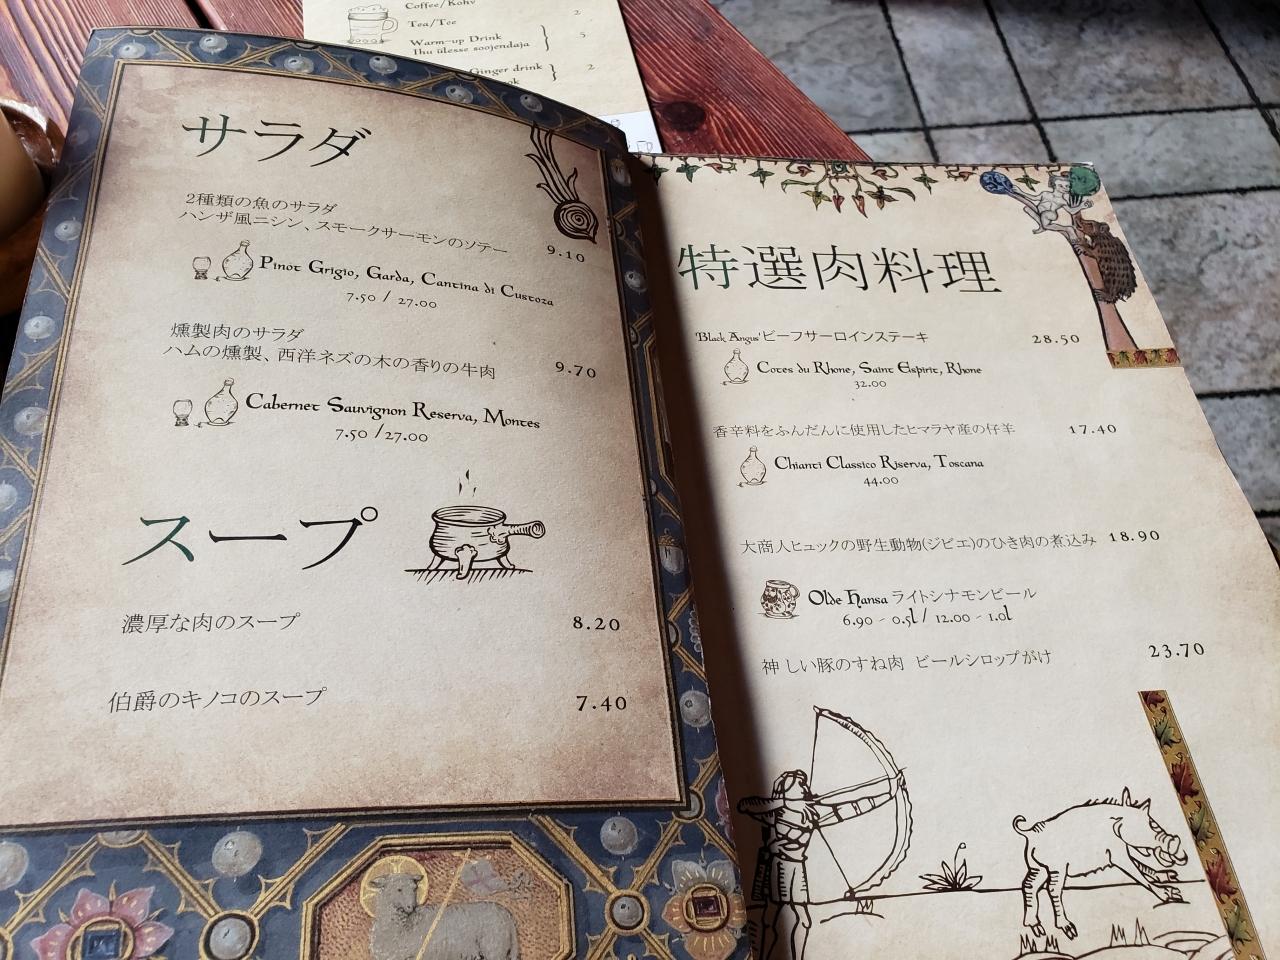 Coffee/Kohv
2
Tea/Tee
Warm-up Drink
Ihu ülesse soojendaja
5
Ginger drink
2
サラダ
2種類の魚のサラダ
ハンザ風ニシン、スモークサーモンのソテー 9.10
Pinot Grigio, Garda, Cantina di Custoza
7.50 / 27.00
燻製肉のサラダ
ハムの燻製、西洋ネズの木の香りの牛肉 9.70
Cabernet Sauvignon Reserva, Montes
7.50 /27.00
スープ
濃厚な肉のスープ 8.20
伯爵のキノコのスープ 7.40
特選肉料理
'Black Angus'ビーフサーロインステーキ 28.50
Cotes du Rhone, Saint Esprit, Rhone
32.00
香辛料をふんだんに使用したヒマラヤ産の仔羊 17.40
Chianti Classico Riserva, Toscana
44.00
大商人ヒュックの野生動物(ジビエ)のひき肉の煮込み 18.90
Olde Hansa ライトシナモンビール
6.90 - 0.5l / 12.00 - 1.0l
神 しい豚のすね肉 ビールシロップがけ 23.70